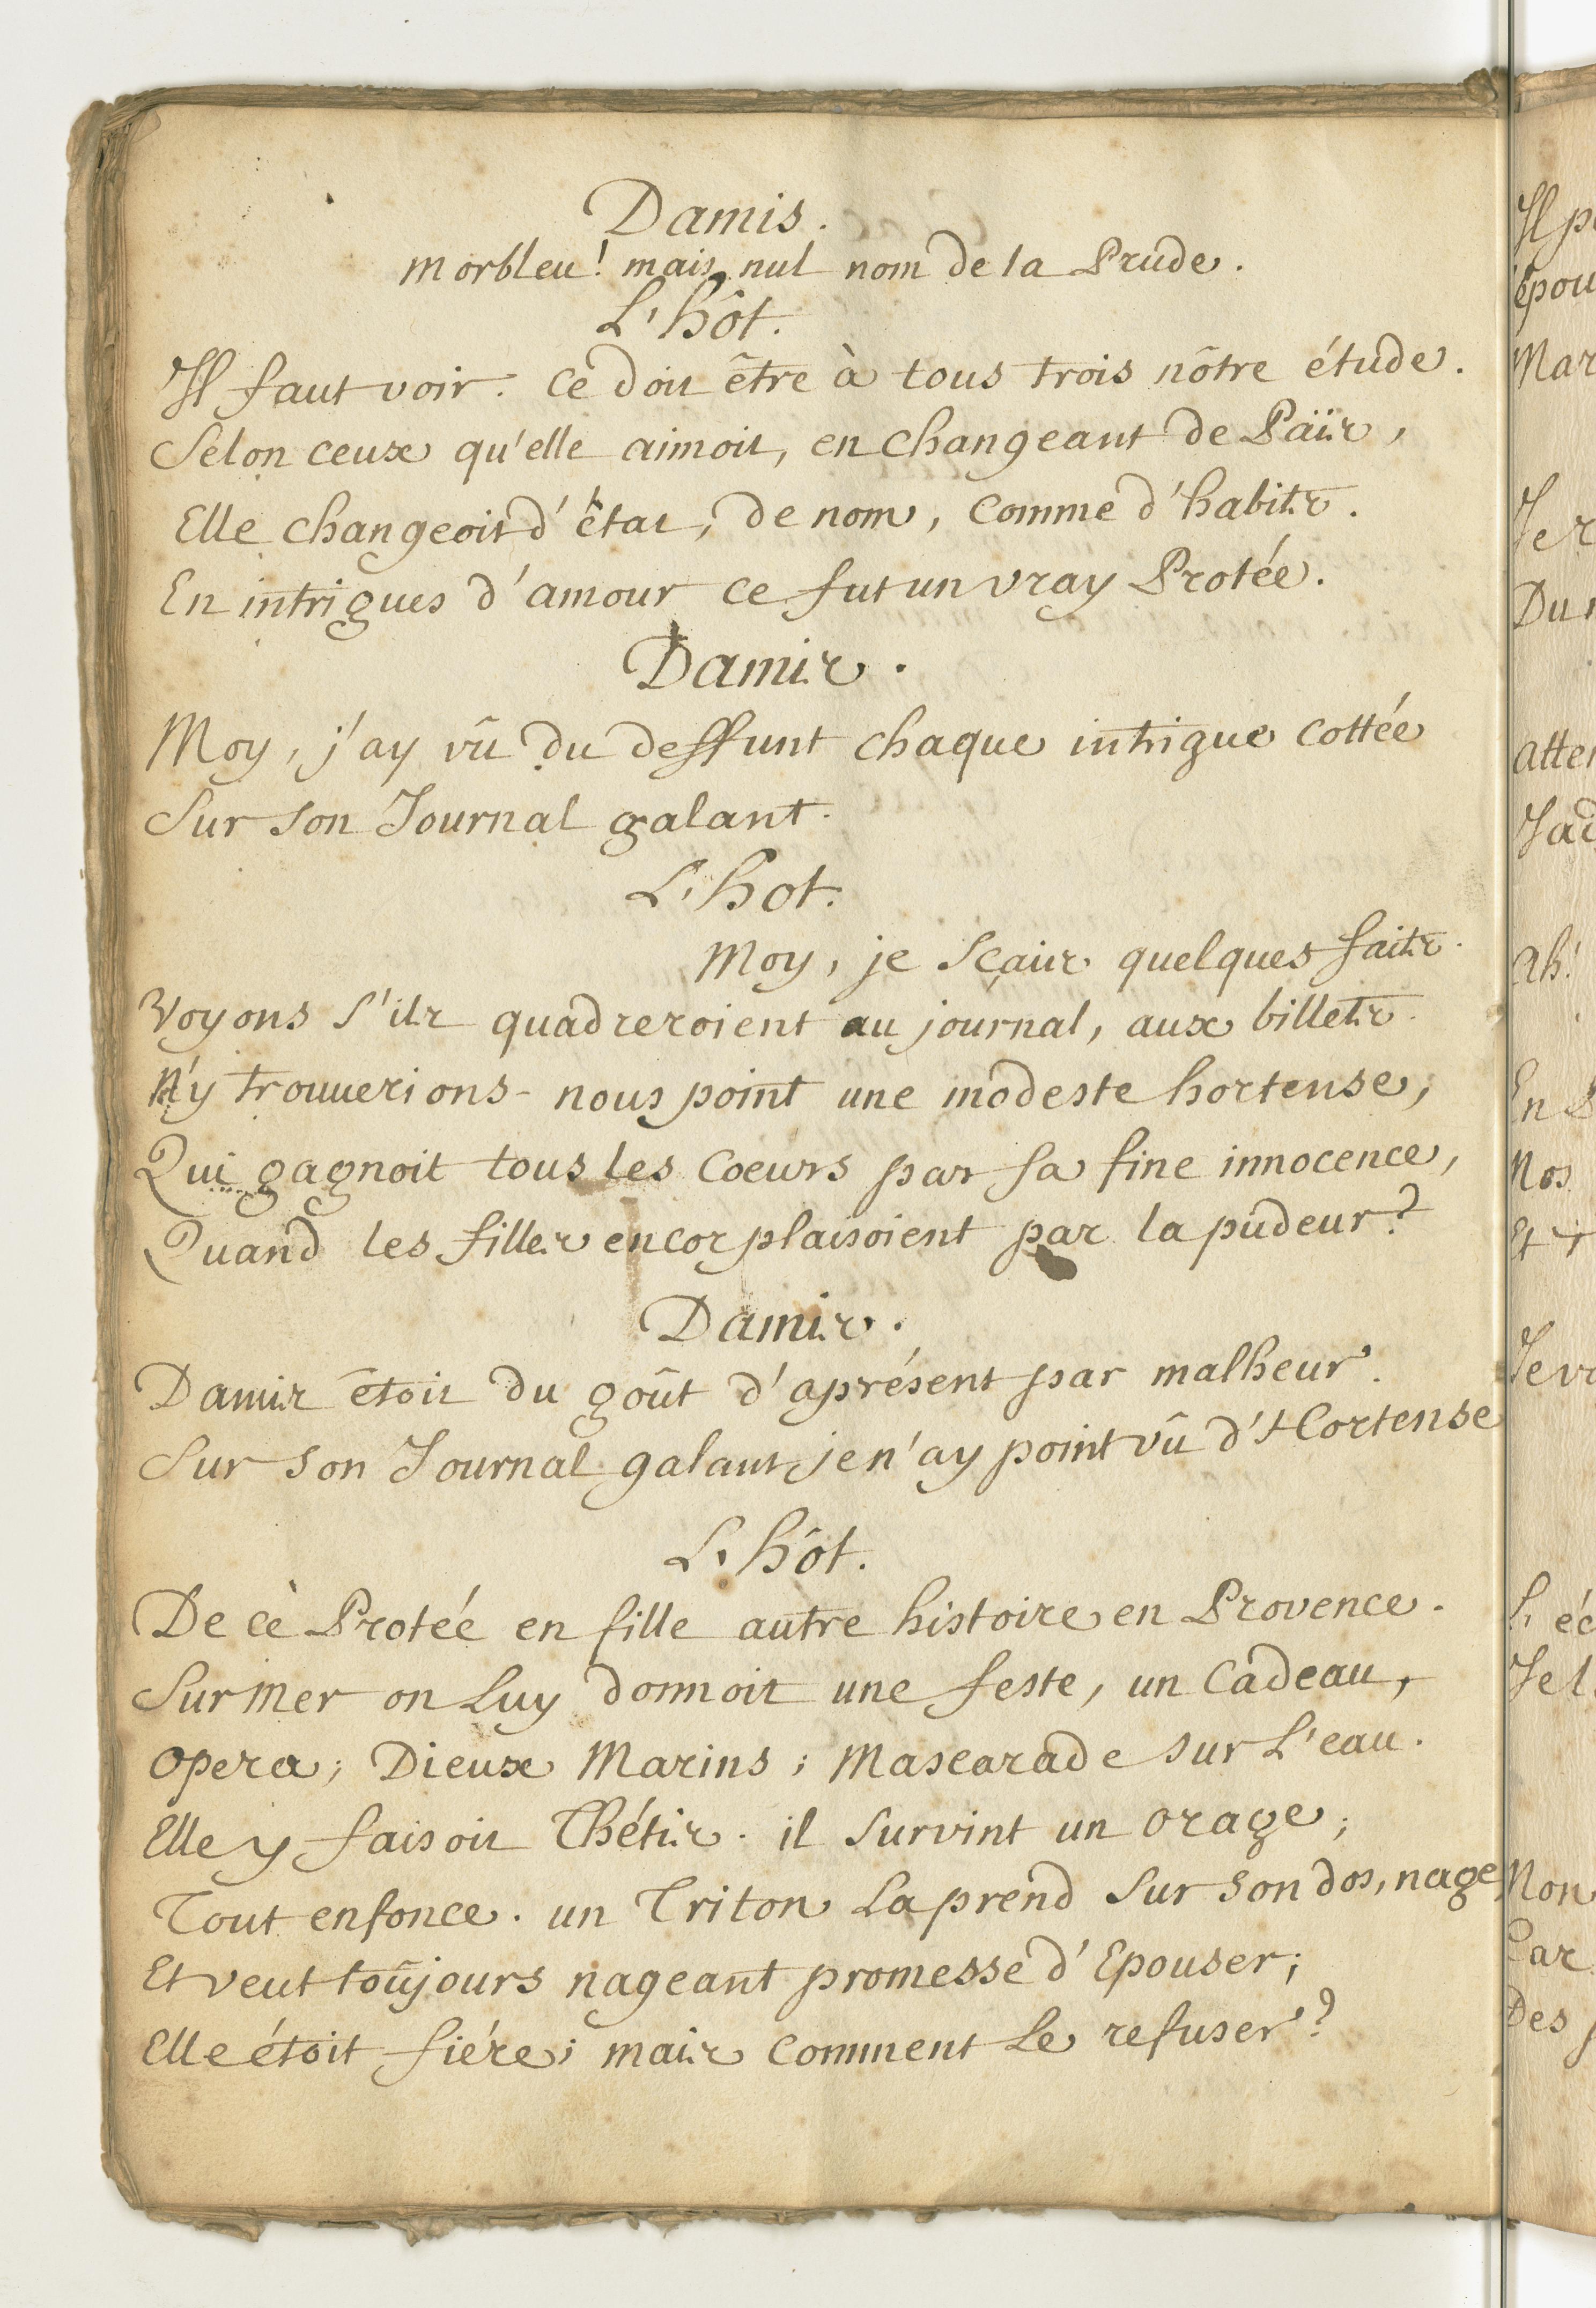 Damis.
morbleu! mais nul nom de la Prude.
L'hôt.
Il faut voir. ce doit être à tous trois nôtre étude.
Selon ceux qu'elle aimoit, en changeant de Païs,
Elle changeoit d'état, de nom, comme d'habits.
En intrigues d'amour ce fut un vray Protée.
Damis.
Moy, j'ay vû du deffunt chaque intrigue cottée
Sur son Journal galant.
L'hot.
Moy, je sçais quelques faits.
Voyons s'ils quadreroient au journal, aux billets.
N'y trouuerions-nous point une modeste hortense,
Qui gagnoit tous les coeurs par sa fine innocence,
Quand les filles encor plaisoient par la pudeur?
Damis.
Damis étoit du goût d'aprésent par malheur.
Sur son Journal galant je n'ay point vû d'Hortense
L'hôt.
De ce Protée en fille autre histoire en Provence.
Sur mer on Luy donnoit une feste, un Cadeau,
Opera; Dieux Marins; Mascarade sur L'eau.
Elle y faisoit Thétis. il survint un orage;
Tout enfonce. un Triton La prend sur son dos, nage
Et veut toûjours nageant promesse d'Epouser;
Elle étoit fiére; mais comment Le refuser?
Il p
épou
Mar
Je r
Du
Atte
Jad
Ah!
En
Nos
Et
Je v
L'éc
Je l
Non
Par
Des